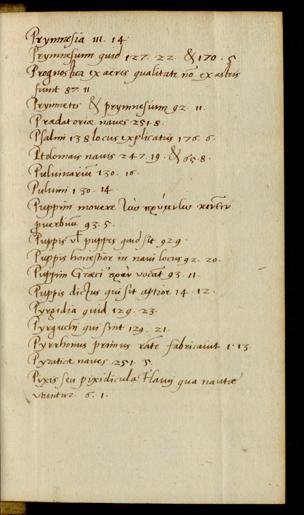 Prymnesia 111. 14.
Prymnesium quid 127. 22. & 170. 5.
Prognostica ex aeris qualitate nõ ex astris
sunt 87. 11
Prymnetes & prymnesium 92. 11.
Praedatoriae naves 251. 8.
Psalmi 138 locus explicatus 176. 6.
Ptolomais navis 247. 19. & 65. 8.
Pulvinarium 130. 16.
Pulvini 130. 14.
Puppim movere κινεῖν
proverbium 93. 5.
Puppis vel puppes quid sit 92. 9.
Puppis honestior in navi locus 92. 20.
Puppim Graeci vocant 93. 11.
Puppis dictus qui sit aptior 14. 12.
Pyrgidia quid 129. 23.
Pyrguchi qui sint 129. 21.
Pyrrhonus primus rate fabricavit 1. 13.
Pyraticae naves 251. 5.
Pyxis seu pixidicula Flavii qua nautae
utuntur 6. 1.